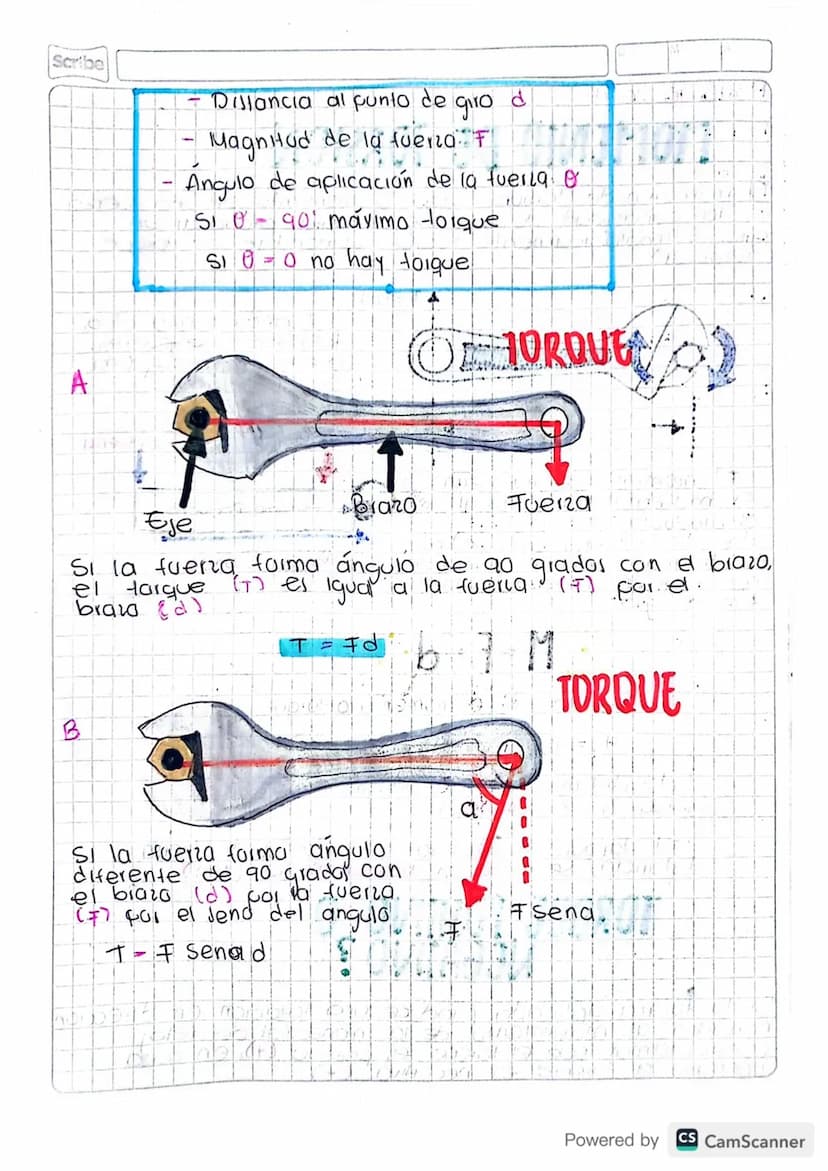 Scribe
- Distancia al punto de giro d
- Magnitud de la fuerza F
- Ángulo de aplicación de la fuerza θ
Si θ = 90° máximo torque
Si θ = 0 no hay torque
TORQUE
A
Eje
Brazo
Fuerza
Si la fuerza forma ángulo de 90 grados con el brazo,
el torque (T) es igual a la fuerza (F) por el
brazo (d)
T = Fd
TORQUE
B
a
Si la fuerza forma ángulo
diferente de 90 grados con
el brazo (d) por la fuerza
(F) por el seno del angulo
F
F sena
T = F sena d
Powered by CS CamScanner